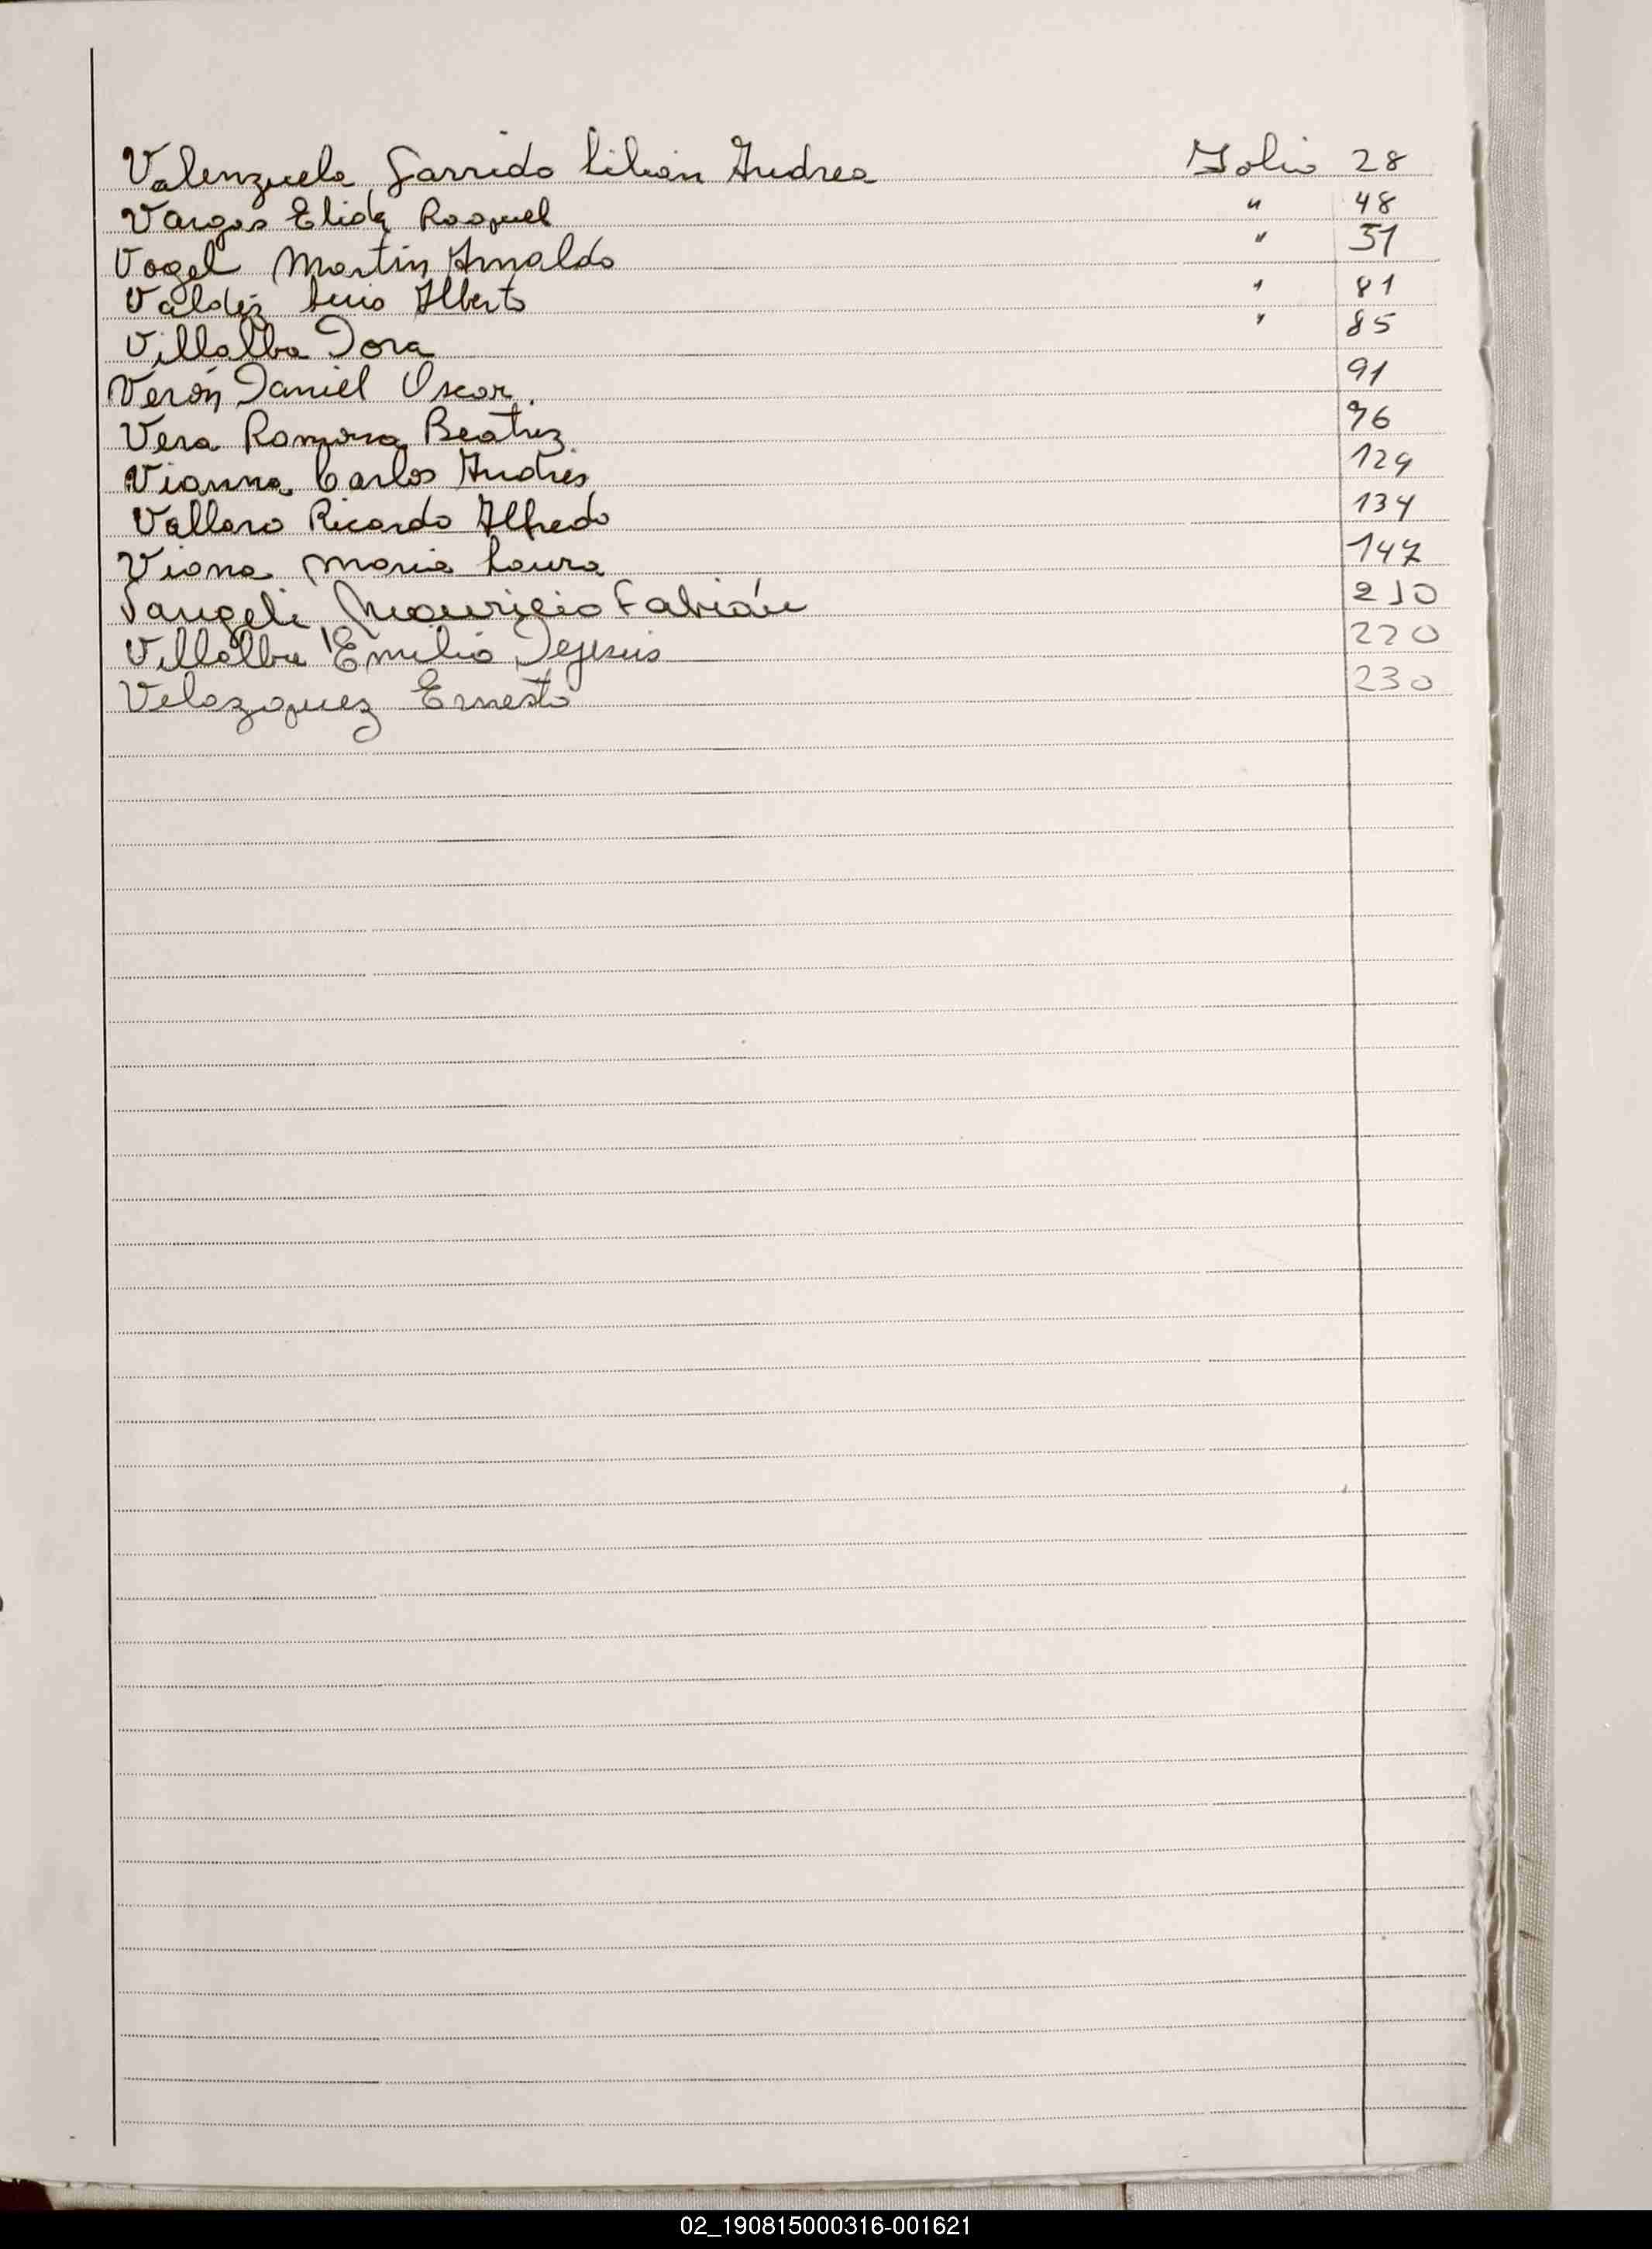 Valenzuela Garrido Lilian Andrea Folio 28
Vargas Elida Raquel " 48
Vogel Martin Arnaldo " 51
Valdéz Luis Alberto " 81
Villalba Dora " 85
Verón Daniel Oscar. 91
Vera Ramona Beatriz 96
Vianna Carlos Andrés 129
Vallaro Ricardo Alfredo 134
Viana Maria Laura 147
Vangeli Mauricio Fabián 210
Villalba Emilio Dejesús 220
Velazquez Ernesto 230
02_190815000316-001621